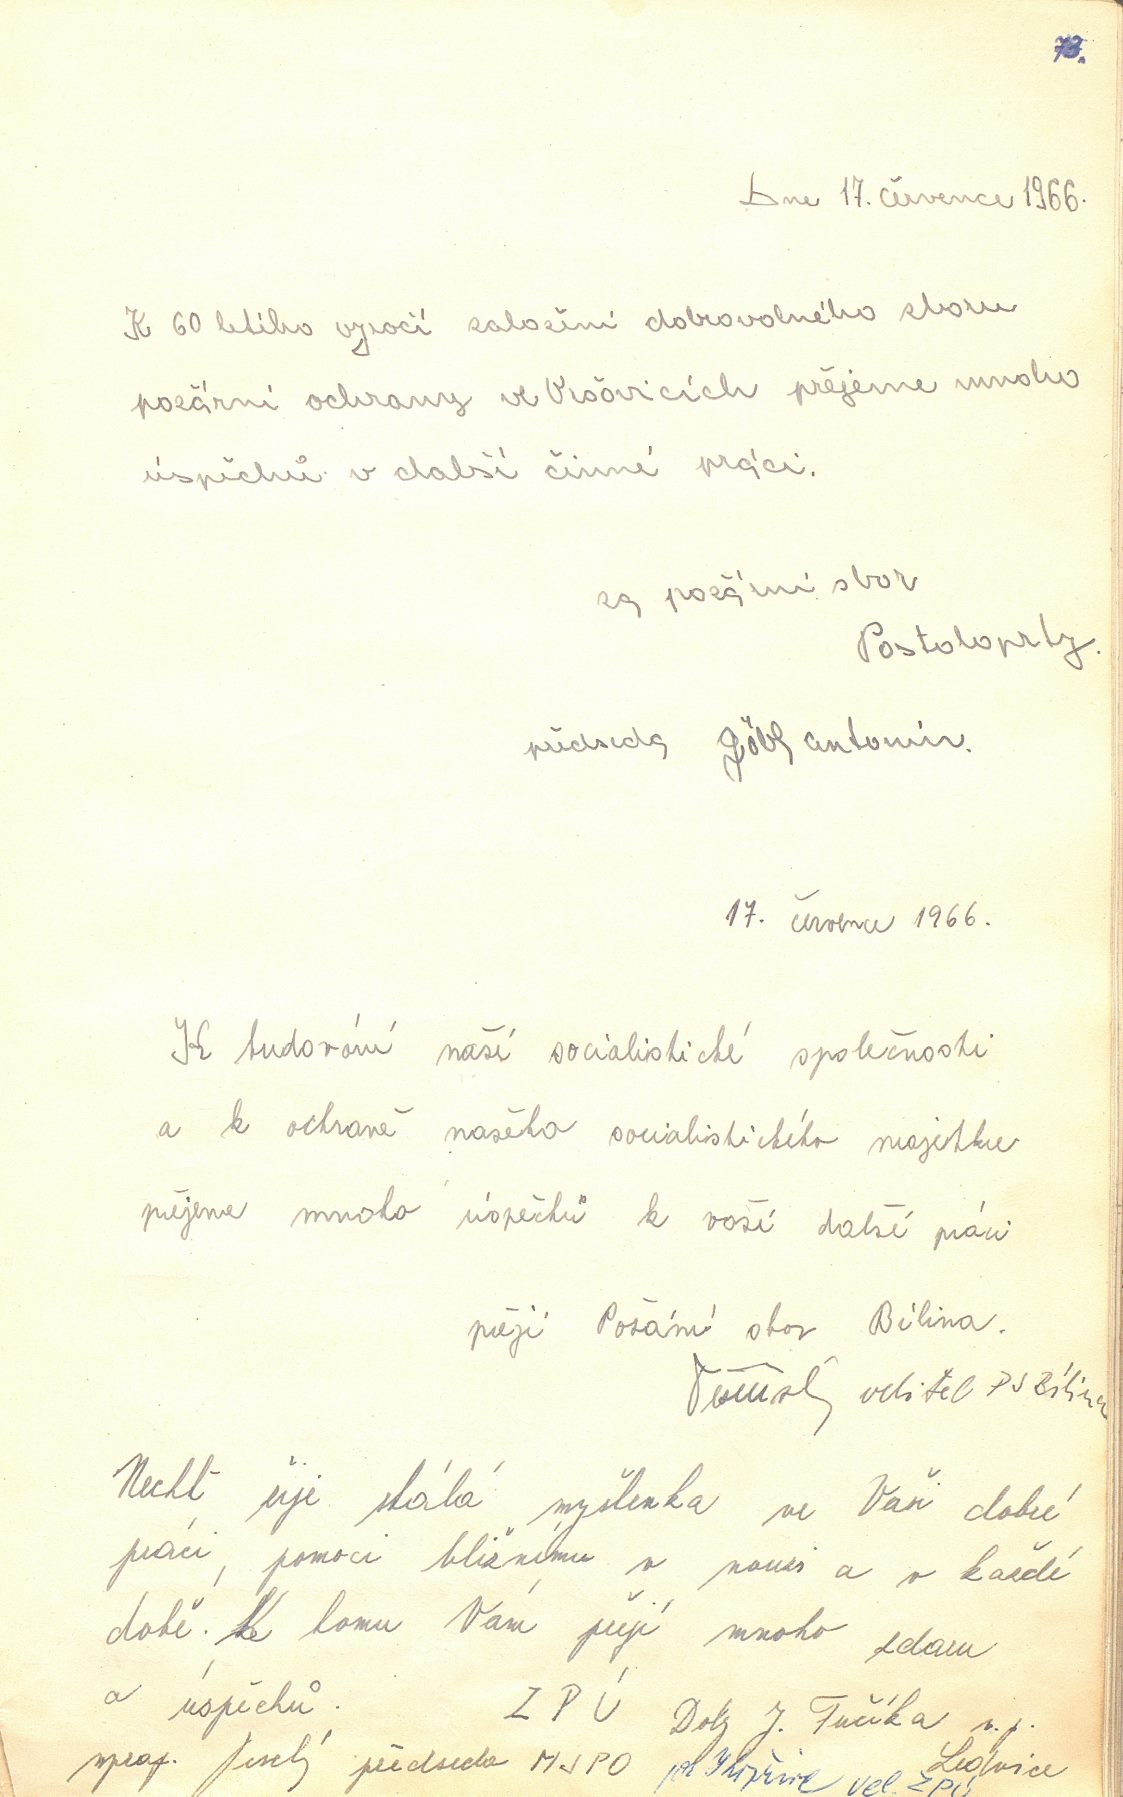 73.
Dne 17. července 1966.
K 60 letího vyročí založení dobrovolného sboru
požární ochrany ve Vršovicích přejeme mnoho
úspěchů v další činné práci.
za požární sbor
Postoloprty.
předseda antonín.
17. července 1966.
K budování naší socialistické společnosti
a k ochraně našeho socialistického majetku
přejeme mnoho úspěchů k vaší další práci
přejí Požární sbor Bílina.
velitel PS Bílina
Nechť žije stálá myšlenka ve Vaší dobré
práci, pomoci bližnímu v nouzi a v každé
době. Ke tomu Vám přejí mnoho zdaru
a úspěchů. ZPÚ Doly J. Fučíka n. p.
Ledvice
předseda MSPO vel. ZPÚ